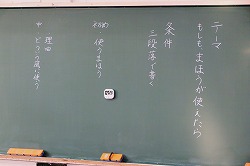 テーマ
もしもまほうが使えたら
条件
三段落で書く
初め 使うまほう
中 理由
どういう風に使う